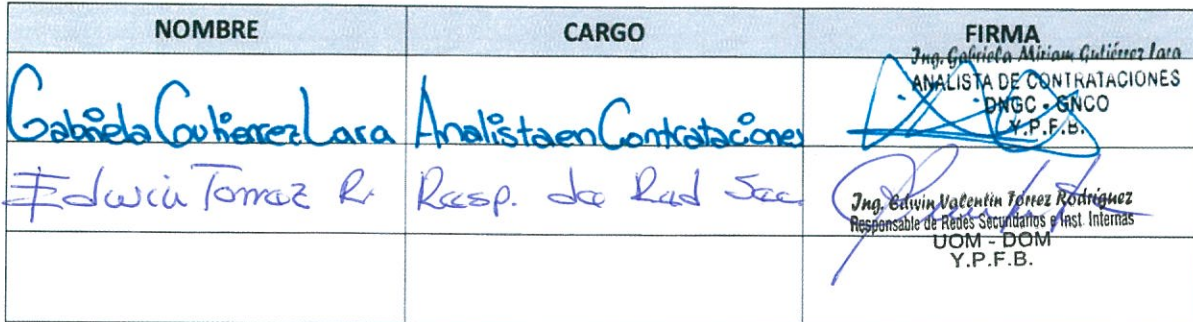 NOMBRE CARGO FIRMA
Ing. Gabriela Miriam Gutiérrez Lara
ANALISTA DE CONTRATACIONES
DNGC - GNCO
Y.P.F.B.
Gabriela Gutierrez Lara Analista en Contrataciones
Edwin Torrez R. Resp. de Red Sec
Ing. Edwin Valentin Torrez Rodriguez
Responsable de Redes Secundarios e Inst. Internas
UOM - DOM
Y.P.F.B.